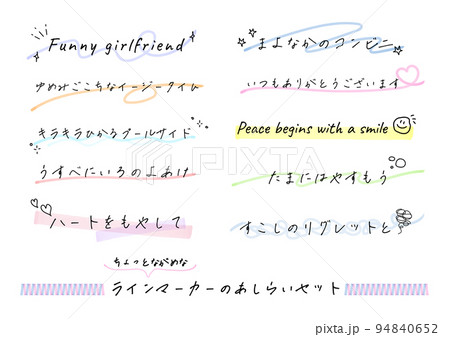 Funny girlfriend
ゆめみごこちなイージータイム
キラキラひかるプールサイド
うすべにいろのよあけ
ハートをもやして
まよなかのコンビニ
いつもありがとうございます
Peace begins with a smile
たまにはやすもう
すこしのリグレットと
ちょっとながめな
ラインマーカーのあしらいセット
PIXTA
pixta.jp - 94840652